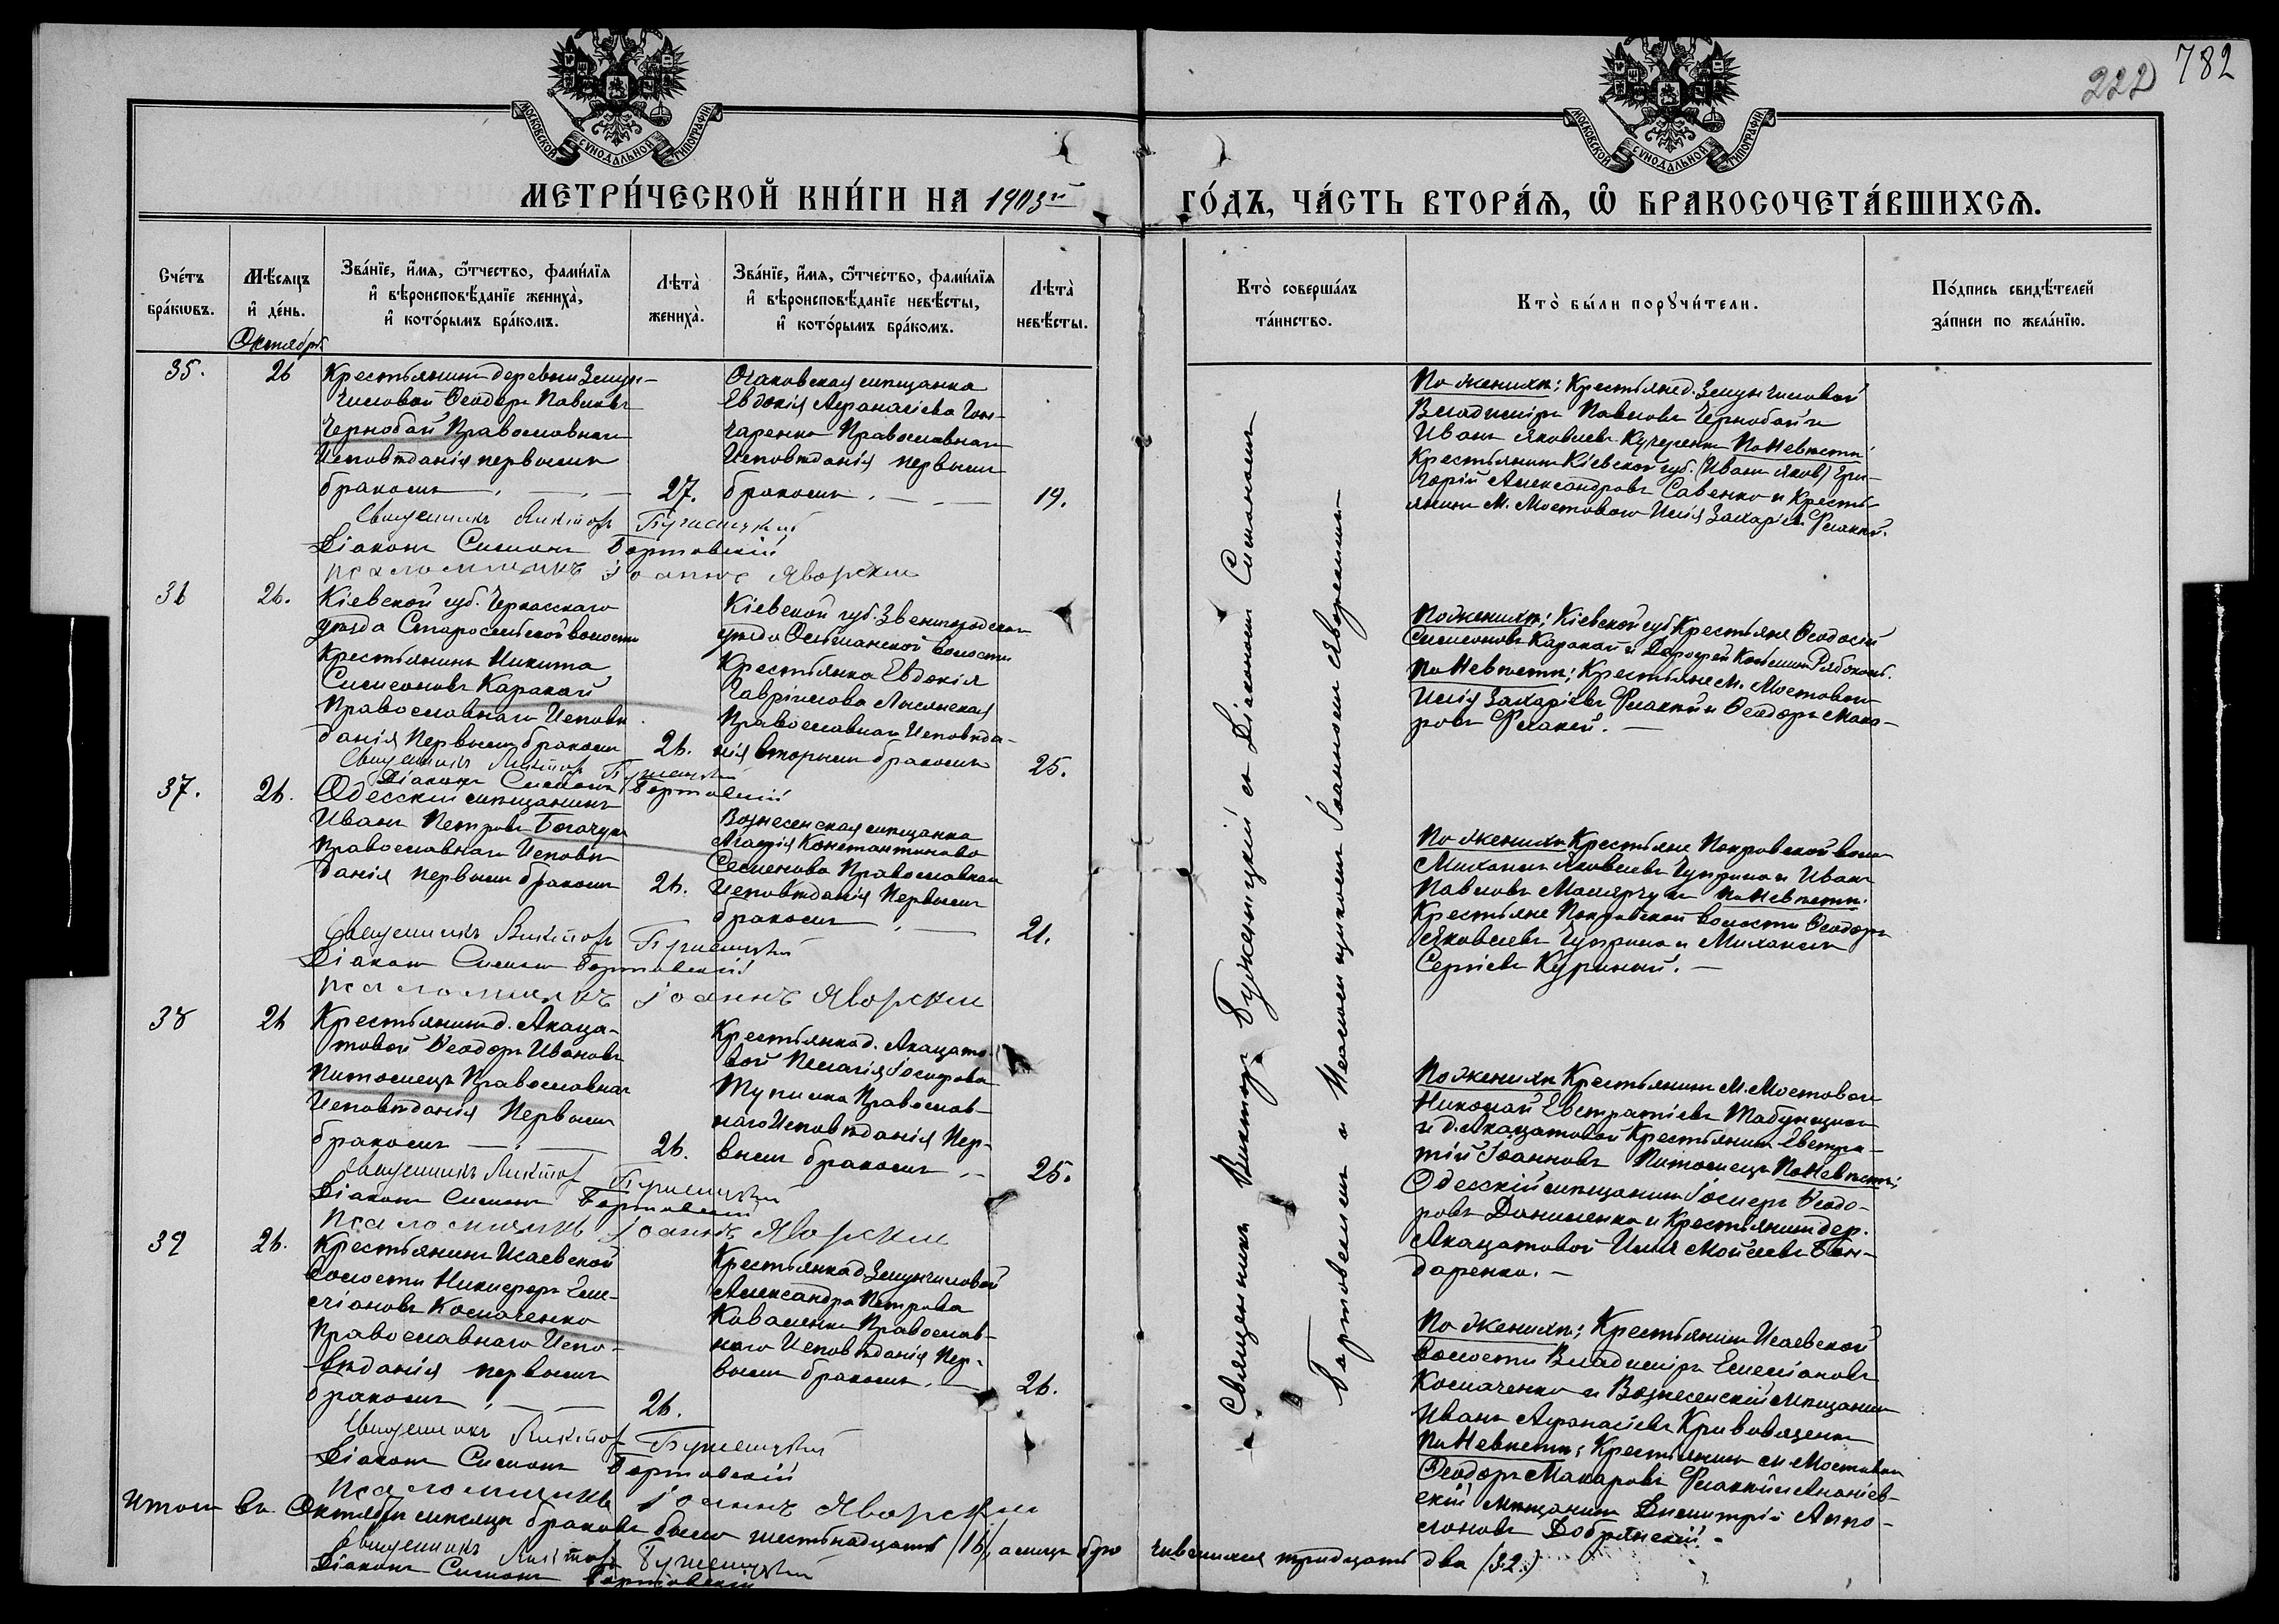 782
222
МОСКОВСКОЙ СѴНОДАЛЬНОЙ ТИПОГРАФІИ
МОСКОВСКОЙ СѴНОДАЛЬНОЙ ТИПОГРАФІИ
МЕТРИ́ЧЕСКОЙ КНИ́ГИ НА 1903й
ГО́ДЪ, ЧА́СТЬ ВТОРА́Я, Ѡ БРАКОСОЧЕТА́ВШИХСЯ.
Сче́тъ
бра́кωвъ.
Мѣ́сяцъ
и҆ де́нь.
Октябрь
Зва́нїе, и҆́мя, ѻ҆́тчество, фами́лїя
и҆ вѣроисповѣ́данїе жениха̀,
и҆ кото́рымъ бра́комъ.
Лѣта̀
жениха̀.
Зва́нїе, и҆́мя, ѻ҆́тчество, фами́лїя
и҆ вѣроисповѣ́данїе невѣ́сты,
и҆ кото́рымъ бра́комъ.
Лѣта̀
невѣ́сты.
Кто̀ соверша́лъ
та́инство.
Кто̀ бы́ли порꙋчи́тели.
По́дпись свидѣ́телей
за́писи по жела́нїю.
35.
26
Крестьянинъ деревни Змун-
чиловой Ѳеодоръ Павловъ
Чернобай Православнаго
Исповѣданія первымъ
бракомъ
27.
Очаковская мѣщанка
Евдокія Аѳанасіева Гон-
чаренко Православнаго
Исповѣданія первымъ
бракомъ
19.
По женихѣ: Крестьяне д. Змунчиловой
Владиміръ Павловъ Чернобай и
Иванъ Яковлевъ Кучеренко По Невѣстѣ:
Крестьянинъ Кіевской губ. (Иванъ Яков) Гри-
горій Александровъ Савенко и Кресть-
янинъ М. Мостового Илія Захаріевъ
Священникъ Викторъ Буженицкій
Діаконъ Симонъ Бортовскій
псаломщикъ Іоаннъ Яворскій
36
26.
Кіевской губ. Черкасскаго
уѣзда Старосельской волости
Крестьянинъ Никита
Симеоновъ Каракай
Православнаго Исповѣ-
данія Первымъ бракомъ
26.
Кіевской губ. Звенигородскаго
уѣзда Ольшанской волости
Крестьянка Евдокія
Гавріилова Лысянская
Православнаго Исповѣда-
нія вторымъ бракомъ
25.
По женихѣ: Кіевской губ. Крестьяне Ѳеодосій
Симеоновъ Каракай и
По Невѣстѣ: Крестьяне М. Мостового
Илія Захаріевъ и Ѳеодоръ Мака-
ровъ
Священникъ Викторъ Буженицкій
Діаконъ Симонъ Бортовскій
37.
26.
Одесскій мѣщанинъ
Иванъ Петровъ Богачукъ
Православнаго Исповѣ-
данія первымъ бракомъ
26.
Вознесенская мѣщанка
Марія Константинова
Семенова Православнаго
Исповѣданія Первымъ
бракомъ
21.
По женихѣ Крестьяне Покровской волос
Михаилъ Яковлевъ Чуприна и Иванъ
Павловъ Маслярчукъ По Невѣстѣ:
Крестьяне Покровской волости Ѳеодоръ
Яковлевъ Чуприна и Михаилъ
Сергіевъ Куриный.
Священникъ Викторъ Буженицкій
Діаконъ Симонъ Бортовскій
псаломщикъ Іоаннъ Яворскій
38
26
Крестьянинъ д. Акаца-
товой Ѳеодоръ Ивановъ
Питомецъ Православнаго
Исповѣданія Первымъ
бракомъ
26.
Крестьянка д. Акацато-
вой Пелагія Іосифова
Тупилка Православ-
наго Исповѣданія Пер-
вымъ бракомъ
25.
По женихѣ Крестьянинъ М. Мостового
Николай Евстратіевъ Табунщикъ
и д. Акацатовой Крестьянинъ Евстра-
тій Іоанновъ Питомецъ По Невѣстѣ:
Одесскій мѣщанинъ Іосифъ Ѳеодо-
ровъ Даниленко и Крестьянинъ дер.
Акацатовой Илія Моисеевъ Бон-
даренко.
Священникъ Викторъ Буженицкій
Діаконъ Симонъ Бортовскій
псаломщикъ Іоаннъ Яворскій
39
26.
Крестьянинъ Исаевской
волости Никифоръ Еме-
ліановъ Космаченко
Православнаго Испо-
вѣданія первымъ
бракомъ
26.
Крестьянка д. Змунчиловой
Александра Петрова
Коваленко Православ-
наго Исповѣданія Пер-
вымъ бракомъ
26.
По женихѣ: Крестьянинъ Исаевской
волости Владиміръ Емеліановъ
Космаченко и Вознесенскій мѣщанинъ
Иванъ Аѳанасіевъ
По Невѣстѣ: Крестьянинъ м. Мостового
Ѳеодоръ Макаровъ и Ананіев-
скій мѣщанинъ Димитрій Аппо-
лоновъ Добрянскій.
Священникъ Викторъ Буженицкій
Діаконъ Симонъ Бортовскій
псаломщикъ Іоаннъ Яворскій
Священникъ Викторъ Буженицкій съ Діакономъ Симономъ
Бортовскимъ и Псаломщикомъ Іоанномъ Яворскимъ
Итого въ Октябрѣ мѣсяцѣ браковъ было шестьнадцать (16), а лицъ бра чившихся тридцать два (32.)
Священникъ Викторъ Буженицкій
Діаконъ Симонъ Бортовскій